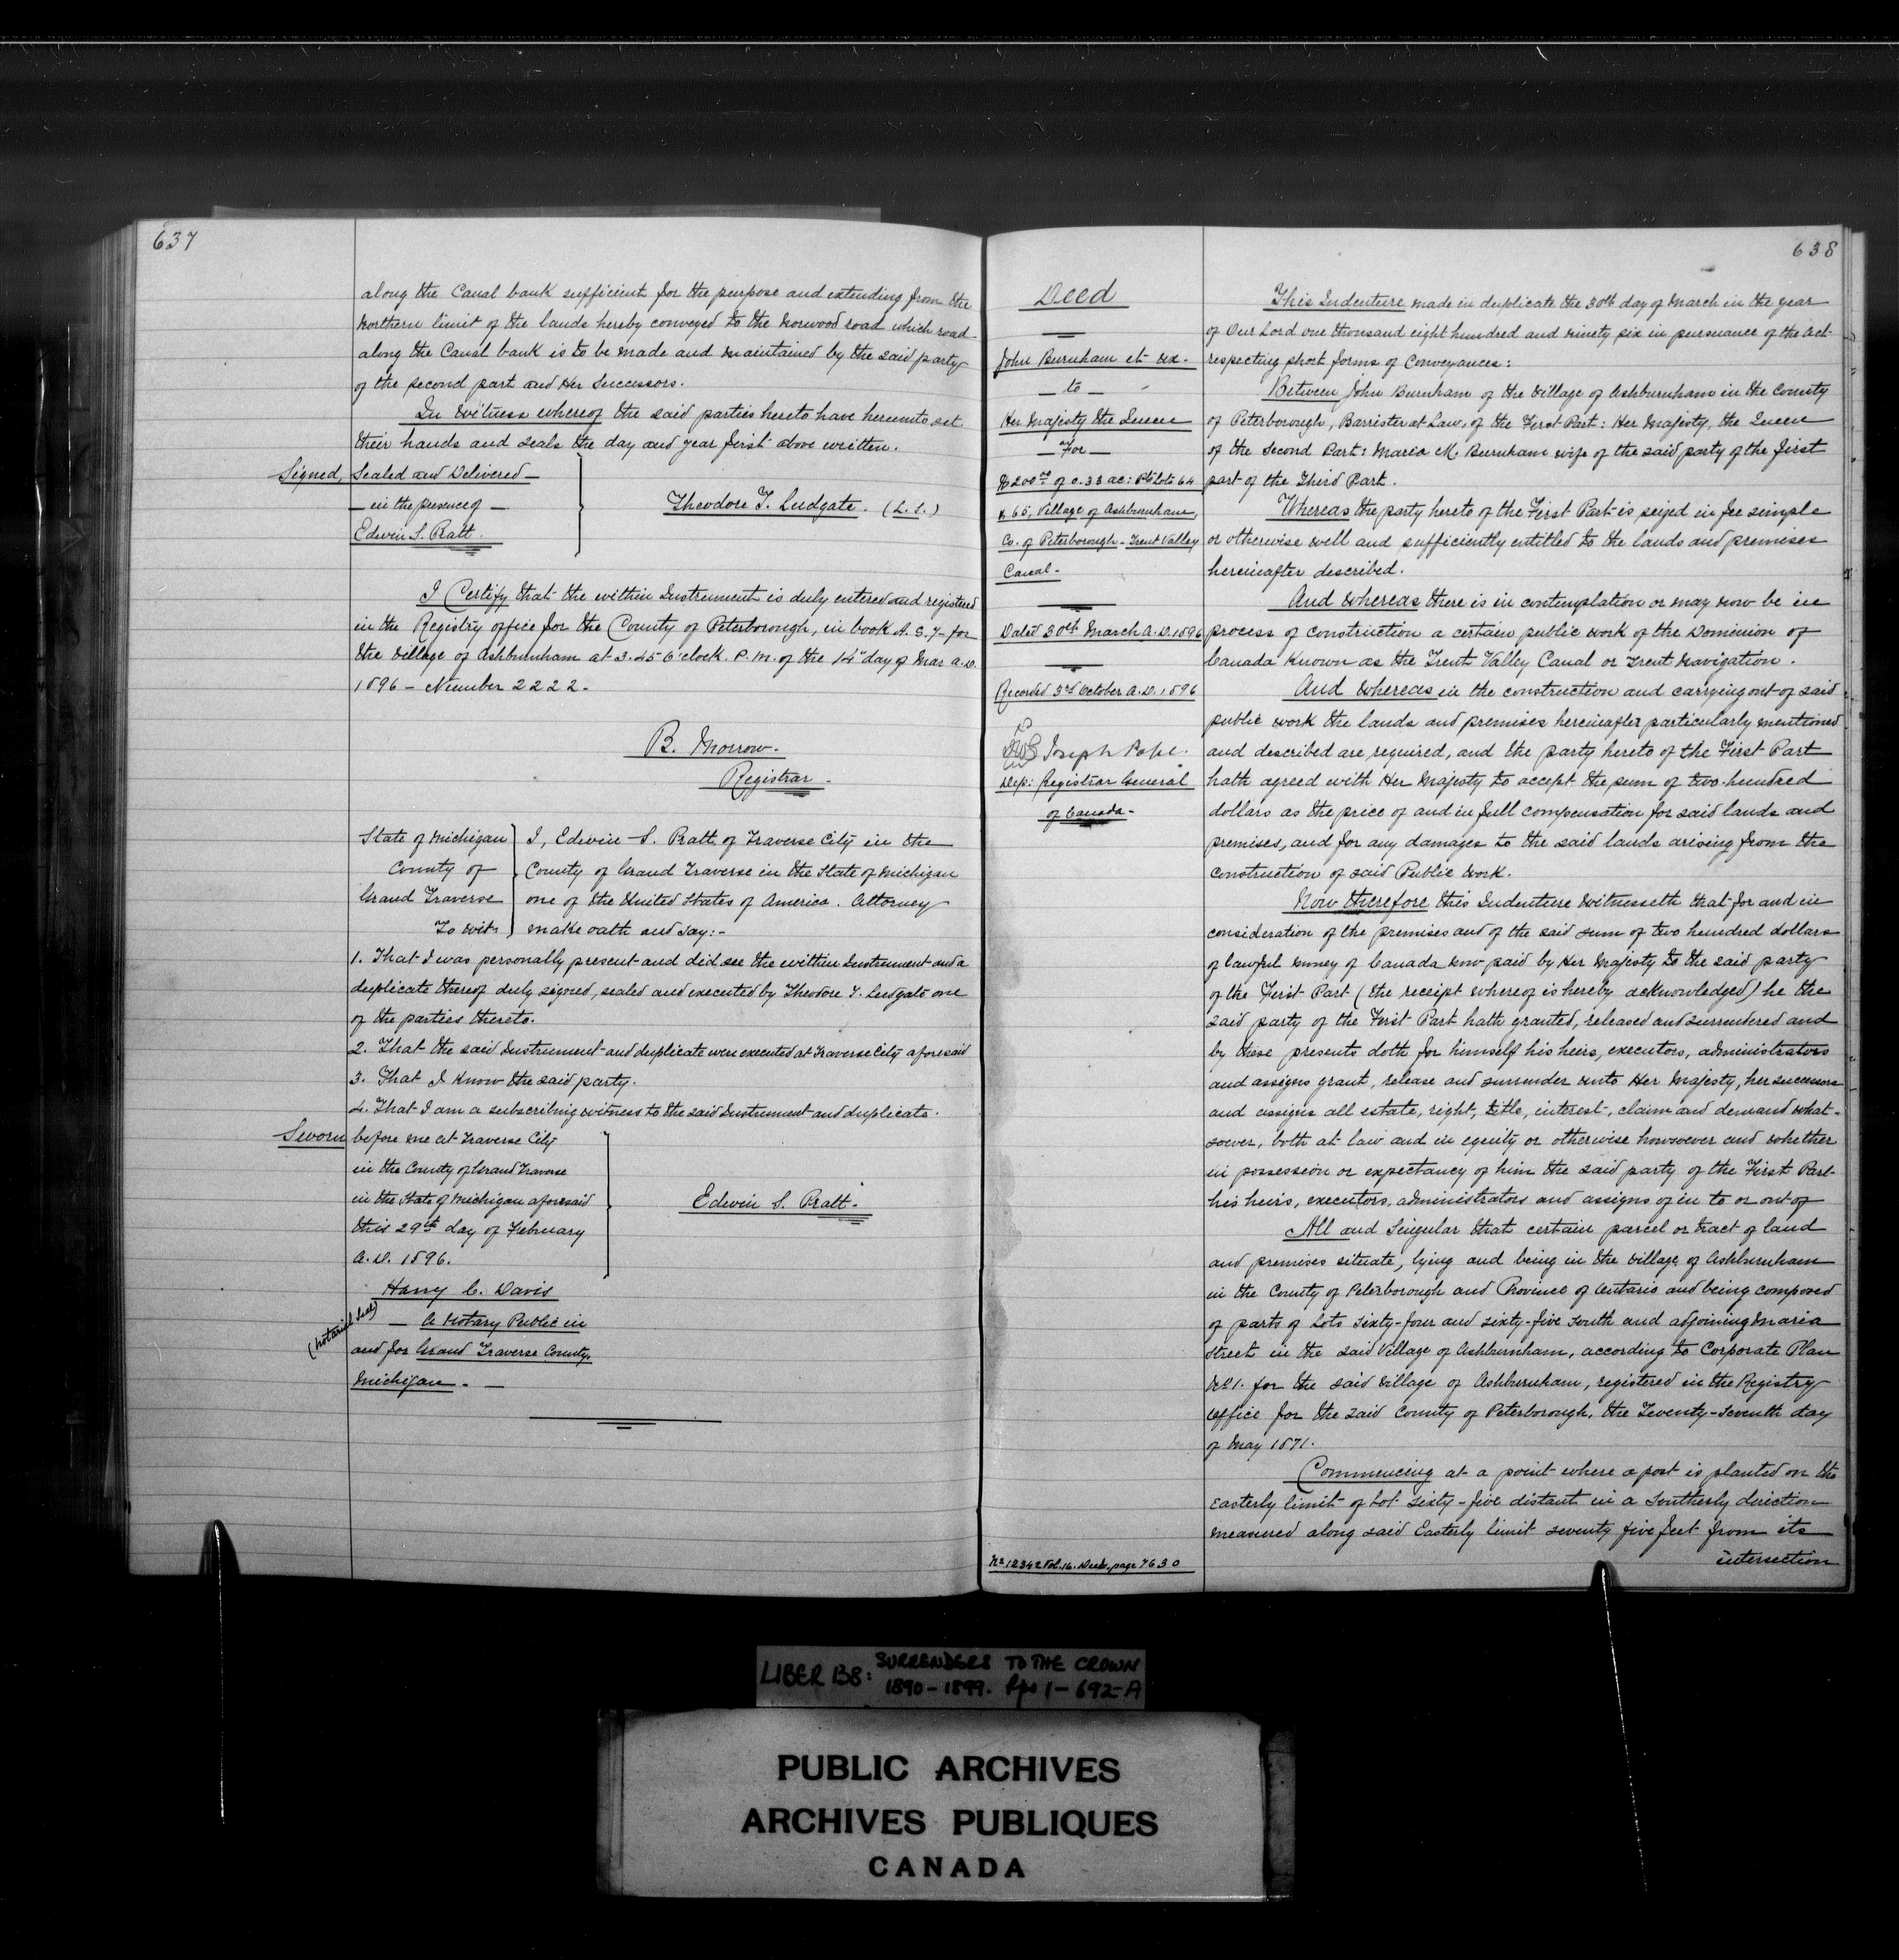 637
along the Canal bank sufficient for the purpose and extending from the
Northern limit of the lands hereby conveyed to the Norwood road which road
along the Canal bank is to be made and maintained by the said party
of the second part and Her Successors.
In Witness whereof the said parties hereto have hereunto set
their hands and seals the day and year first above written.
Signed, Sealed and Delivered —
— in the presence of —
Edwin S. Pratt.
Theodore T. Ludgate. (L.S.)
I Certify that the within Instrument is duly entered and registered
in the Registry office for the County of Peterborough, in book A.S.7- for
the Village of Ashburnham at 3.45 O'clock. P.M. of the 14" day of Mar A.D.
1896 – Number 2222.
B. Morrow.
Registrar.
State of Michigan
County of
Grand Traverse
To wit:
I, Edwin S. Pratt of Traverse City in the
County of Grand Traverse in the State of Michigan
one of the United States of America. Attorney
make oath and say:-
1. That I was personally present and did see the within Instrument and a
duplicate thereof duly signed, sealed and executed by Theodore T. Ludgate one
of the parties thereto.
2. That the said Instrument and duplicate were executed at Traverse City aforesaid
3. That I know the said party.
4. That I am a subscribing witness to the said Instrument and duplicate.
Sworn before me at Traverse City
in the County of Grand Traverse
in the State of Michigan aforesaid
this 29th day of February
A.D. 1896.
Edwin S. Pratt.
Harry C. Davis
(Notarial Seal)
— A Notary Public in
and for Grand Traverse County.
Michigan. —
638
Deed
John Burnham et ux.
— to —
Her Majesty the Queen
— For —
$200.00 of 0.33 ac: Pts Lots 64
& 65, Village of Ashburnham,
Co. of Peterborough – Trent Valley
Canal.
Dated 30th March A.D. 1896
Recorded 3rd October A.D. 1896
Joseph Pope.
Dep: Registrar General
of Canada.
No 12342 Vol. 16. Deeds, page 7630
This Indenture made in duplicate the 30th day of March in the year
of Our Lord one thousand eight hundred and ninety six in pursuance of the Act
respecting short forms of Conveyances:
Between John Burnham of the Village of Ashburnham in the County
of Peterborough, Barrister at Law, of the First Part: Her Majesty, the Queen
of the Second Part: Maria M. Burnham wife of the said party of the first
part of the Third Part.
Whereas the party hereto of the First Part is seized in fee simple
or otherwise well and sufficiently entitled to the lands and premises
hereinafter described.
And Whereas there is in contemplation or may now be in
process of construction a certain public work of the Dominion of
Canada known as the Trent Valley Canal or Trent Navigation.
And Whereas in the construction and carrying out of said
public work the lands and premises hereinafter particularly mentioned
and described are required, and the party hereto of the First Part
hath agreed with Her Majesty to accept the sum of two hundred
dollars as the price of and in full compensation for said lands and
premises, and for any damages to the said lands arising from the
construction of said Public Work.
Now therefore this Indenture witnesseth that for and in
consideration of the premises and of the said sum of two hundred dollars
of lawful money of Canada now paid by Her Majesty to the said party
of the First Part (the receipt whereof is hereby acknowledged) he the
said party of the First Part hath granted, released and surrendered and
by these presents doth for himself his heirs, executors, administrators
and assigns grant, release and surrender unto Her Majesty, her successors
and assigns all estate, right, title, interest, claim and demand what-
soever, both at law and in equity or otherwise howsoever and whether
in possession or expectancy of him the said party of the First Part
his heirs, executors, administrators and assigns of in to or out of
All and Singular that certain parcel or tract of land
and premises situate, lying and being in the Village of Ashburnham
in the County of Peterborough and Province of Ontario and being composed
of parts of Lots sixty-four and sixty-five South and adjoining Maria
Street in the said Village of Ashburnham, according to Corporate Plan
No 1. for the said Village of Ashburnham, registered in the Registry
Office for the said County of Peterborough, the Twenty-seventh day
of May 1871.
Commencing at a point where a post is planted on the
Easterly limit of Lot Sixty-five distant in a Southerly direction
measured along said Easterly limit seventy five feet from its
intersection
LIBER 138: SURRENDERS TO THE CROWN
1890-1899. Pps 1-692-A
PUBLIC ARCHIVES
ARCHIVES PUBLIQUES
CANADA